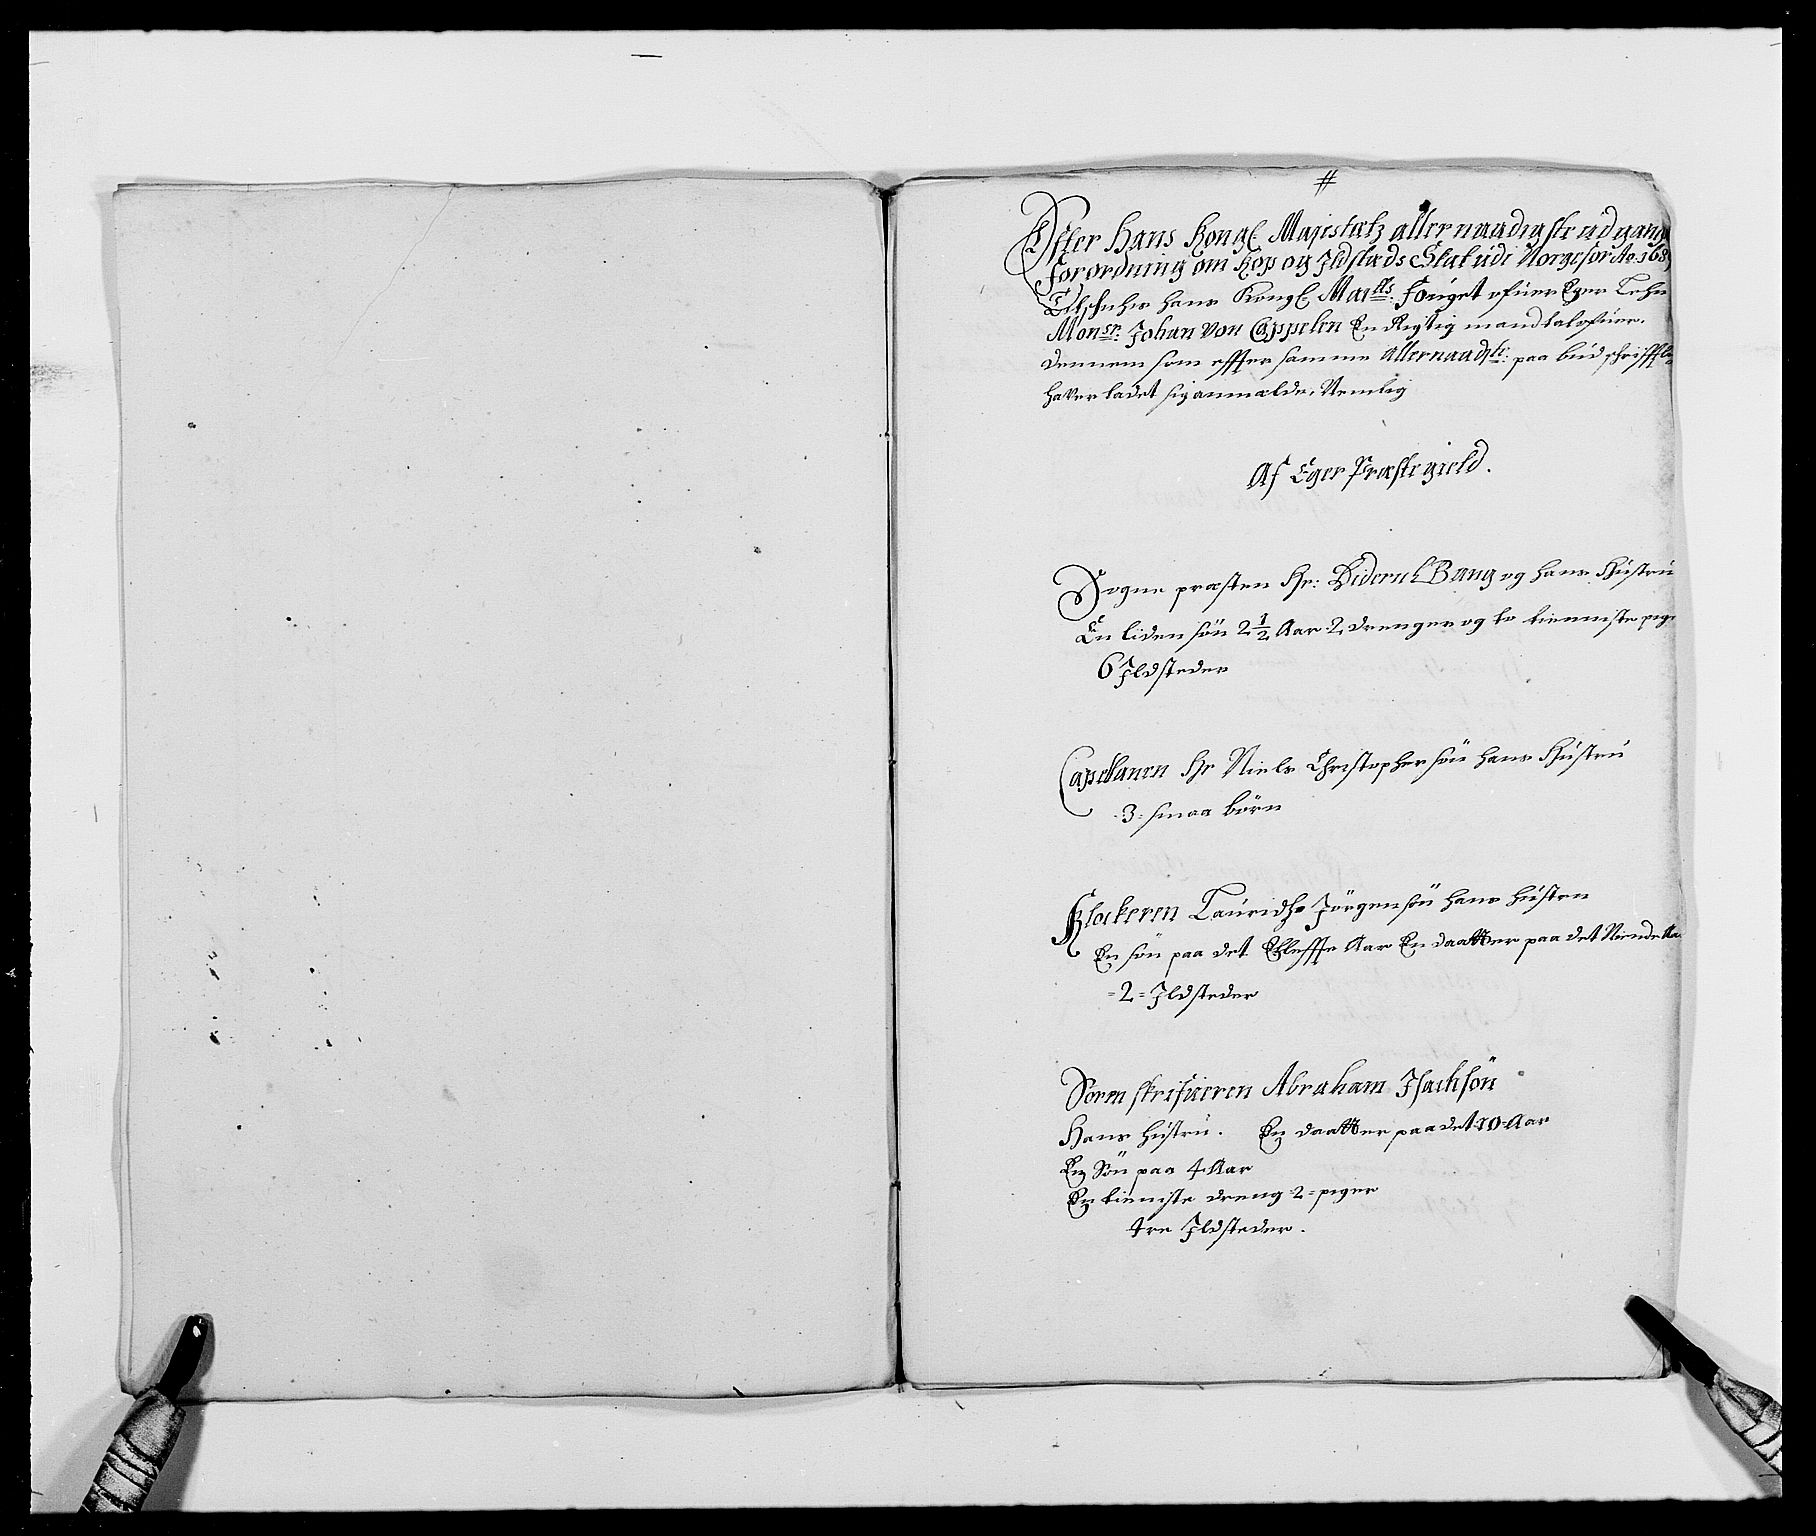 #
Efter Hans Kongl Majestætz allernaadigste udgangne
forordning om Kop og Ildstæds Skat udi Norge for Ao. 168
hans Kongl: Maitts: fouget ofuer Eger Lehn
Monsr: Johan von Cappelen En Rigtig mandtal ofuer.
dennem som effter samme allernaadste: paa bud schrifftl
haver ladet sig anmælde, Nemlig
Af Eger Præste gield.
Sogne præsten Hr: Diderich Bang og hans Hustru
En liden søn 2 1/2 Aar 2 drenger og to tienniste pige
6 Ildsteder
Capellanen Hr Niels Christophersøn hans Hustru
3: smaa børn
Klockeren Lauridtz Jörgensön hans hustru
En søn paa det Ellefffte Aar En daatter paa det Niende Aa
=2= Ildsteder
Soren skrifueren Abraham Isachsön
Hans hustru. En daatter paa det 10 Aar
En Søn paa 4 Aar
En tieniste dreng 2= piger
tre Ildsteder.